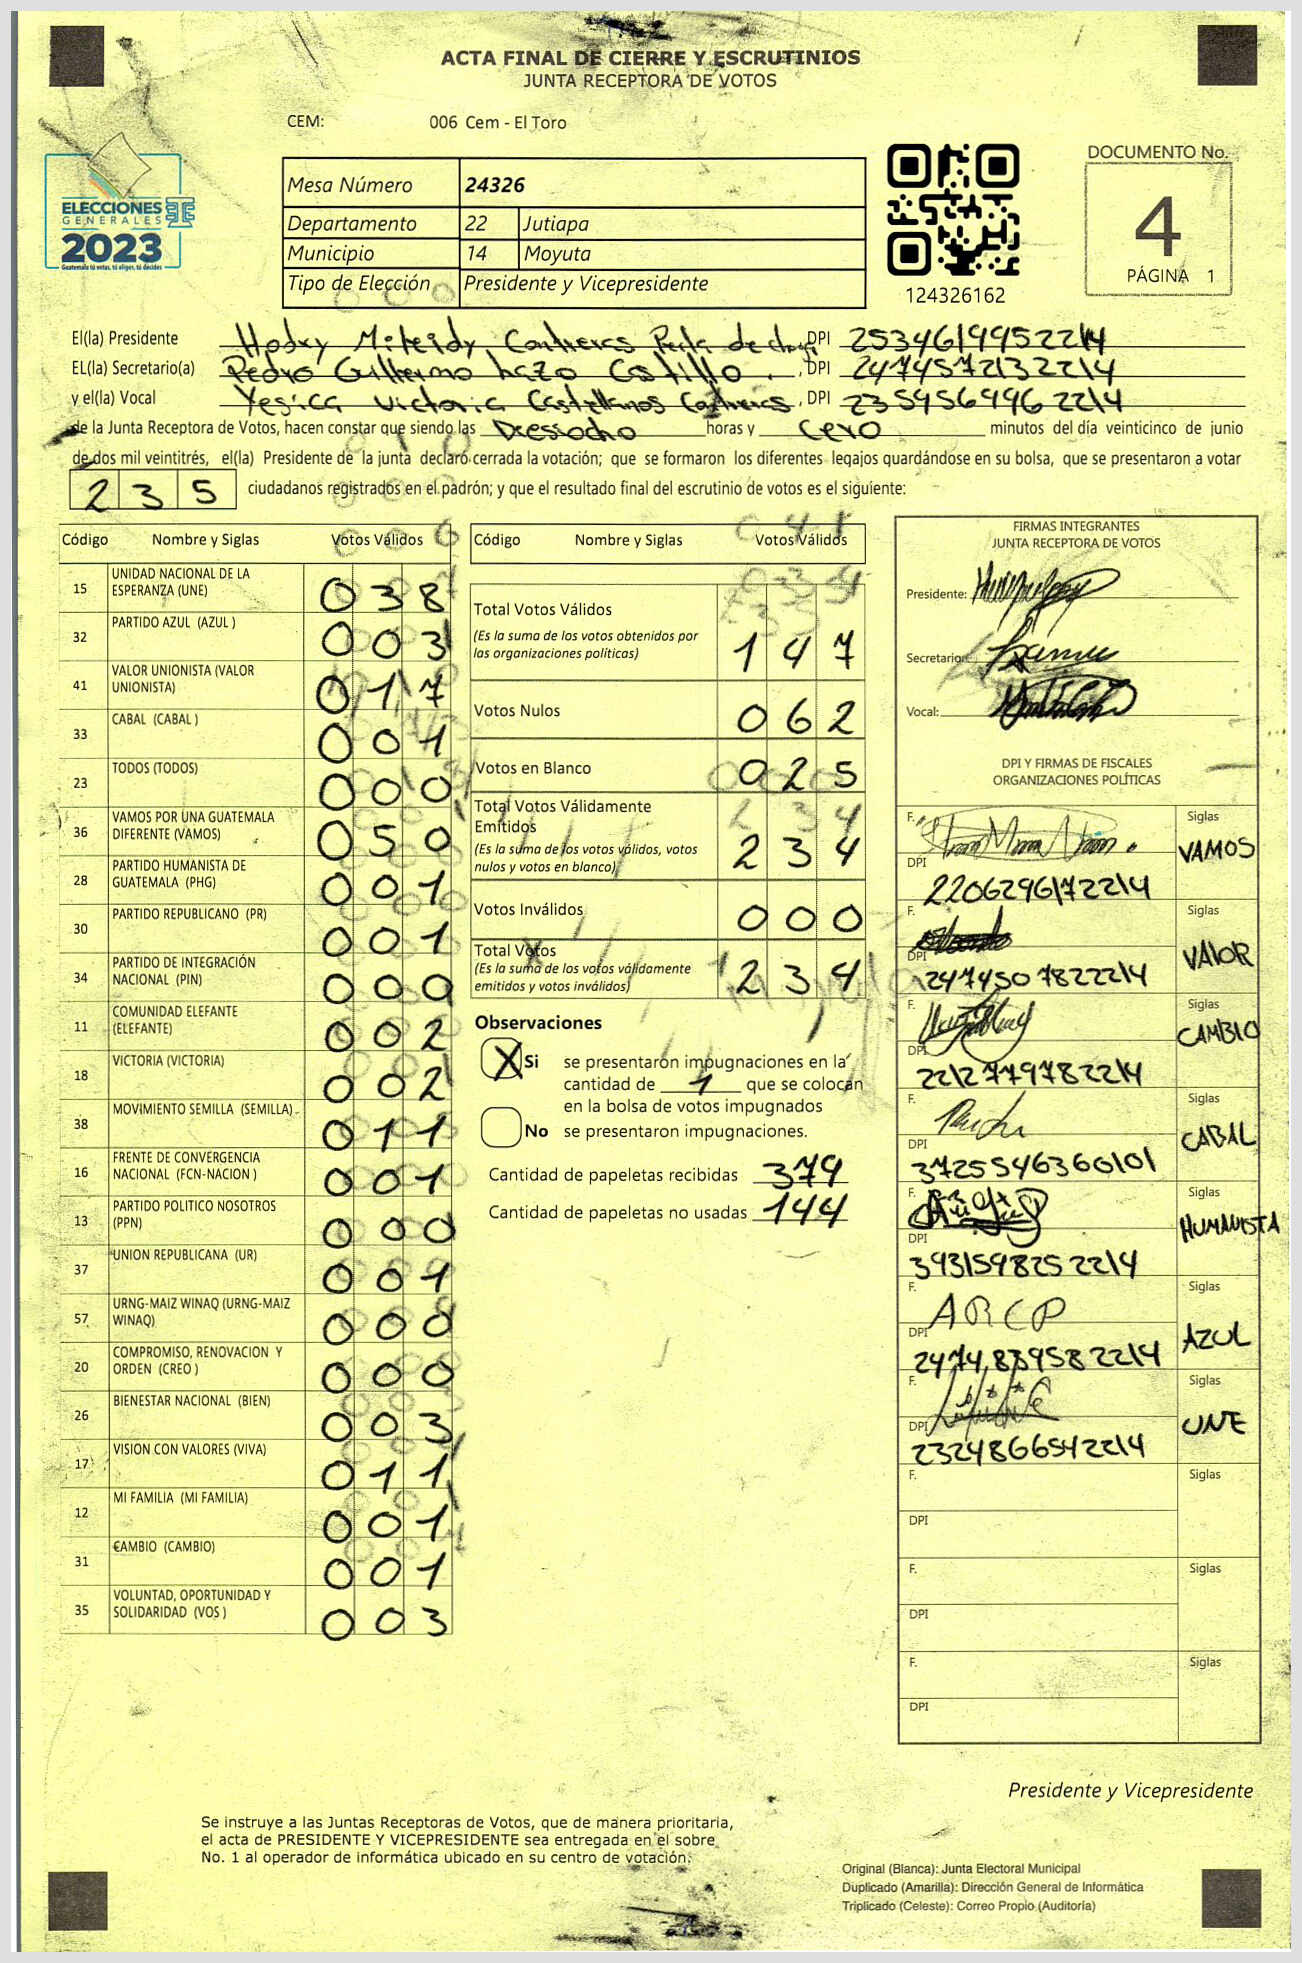 ACTA FINAL DE CIERRE Y ESCRUTINIOS
JUNTA RECEPTORA DE VOTOS
CEM: 006 Cem - El Toro
ELECCIONES
GENERALES
2023
Guatemala tú votas, tú eliges, tú decides
Mesa Número 24326
Departamento 22 Jutiapa
Municipio 14 Moyuta
Tipo de Elección Presidente y Vicepresidente
124326162
DOCUMENTO No.
4
PÁGINA 1
El(la) Presidente Contreras de , DPI 2534619952214
EL(la) Secretario(a) Pedro Guillermo Lazo Castillo. , DPI 2474572132214
y el(la) Vocal Yesica Victoria Castellanos Contreras , DPI 2359569962214
de la Junta Receptora de Votos, hacen constar que siendo las Dieciocho horas y cero minutos del día veinticinco de junio
de dos mil veintitrés, el(la) Presidente de la junta declaró cerrada la votación; que se formaron los diferentes legajos guardándose en su bolsa, que se presentaron a votar
2 3 5 ciudadanos registrados en el padrón; y que el resultado final del escrutinio de votos es el siguiente:
Código Nombre y Siglas Votos Válidos
15 UNIDAD NACIONAL DE LA ESPERANZA (UNE) 0 3 8
32 PARTIDO AZUL (AZUL ) 0 0 3
41 VALOR UNIONISTA (VALOR UNIONISTA) 0 1 7
33 CABAL (CABAL ) 0 0 1
23 TODOS (TODOS) 0 0 0
36 VAMOS POR UNA GUATEMALA DIFERENTE (VAMOS) 0 5 0
28 PARTIDO HUMANISTA DE GUATEMALA (PHG) 0 0 1
30 PARTIDO REPUBLICANO (PR) 0 0 1
34 PARTIDO DE INTEGRACIÓN NACIONAL (PIN) 0 0 0
11 COMUNIDAD ELEFANTE (ELEFANTE) 0 0 2
18 VICTORIA (VICTORIA) 0 0 2
38 MOVIMIENTO SEMILLA (SEMILLA) 0 1 1
16 FRENTE DE CONVERGENCIA NACIONAL (FCN-NACION ) 0 0 1
13 PARTIDO POLITICO NOSOTROS (PPN) 0 0 0
37 UNION REPUBLICANA (UR) 0 0 1
57 URNG-MAIZ WINAQ (URNG-MAIZ WINAQ) 0 0 0
20 COMPROMISO, RENOVACION Y ORDEN (CREO ) 0 0 0
26 BIENESTAR NACIONAL (BIEN) 0 0 3
17 VISION CON VALORES (VIVA) 0 1 1
12 MI FAMILIA (MI FAMILIA) 0 0 1
31 CAMBIO (CAMBIO) 0 0 1
35 VOLUNTAD, OPORTUNIDAD Y SOLIDARIDAD (VOS ) 0 0 3
Código Nombre y Siglas Votos Válidos
Total Votos Válidos 1 4 7
(Es la suma de los votos obtenidos por
las organizaciones políticas)
Votos Nulos 0 6 2
Votos en Blanco 0 2 5
Total Votos Válidamente
Emitidos 2 3 4
(Es la suma de los votos válidos, votos
nulos y votos en blanco)
Votos Inválidos 0 0 0
Total Votos 2 3 4
(Es la suma de los votos válidamente
emitidos y votos inválidos)
Observaciones
X Si se presentaron impugnaciones en la
cantidad de 1 que se colocan
en la bolsa de votos impugnados
No se presentaron impugnaciones.
Cantidad de papeletas recibidas 379
Cantidad de papeletas no usadas 144
FIRMAS INTEGRANTES
JUNTA RECEPTORA DE VOTOS
Presidente:
Secretario:
Vocal:
DPI Y FIRMAS DE FISCALES
ORGANIZACIONES POLÍTICAS
F. Siglas
VAMOS
DPI
2206296172214
F. Siglas
VALOR
DPI
2474507822214
F. Siglas
CAMBIO
DPI
2212779782214
F. Siglas
CABAL
DPI
3725546360101
F. Siglas
HUMANISTA
DPI
3931598252214
F. Siglas
ARCP
AZUL
DPI
2474839582214
F. Siglas
UNE
DPI
2324866542214
F. Siglas
DPI
F. Siglas
DPI
F. Siglas
DPI
Presidente y Vicepresidente
Se instruye a las Juntas Receptoras de Votos, que de manera prioritaria,
el acta de PRESIDENTE Y VICEPRESIDENTE sea entregada en el sobre
No. 1 al operador de informática ubicado en su centro de votación.
Original (Blanca): Junta Electoral Municipal
Duplicado (Amarilla): Dirección General de Informática
Triplicado (Celeste): Correo Propio (Auditoría)